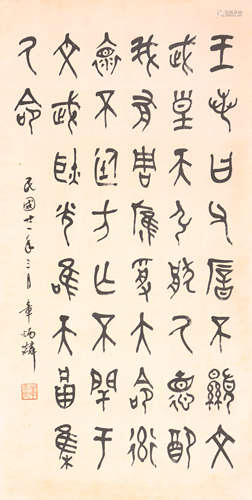 王若曰父㕌不顯文
武皇天弘猒氒德配
我有周膺受大命率
褱不廷方亡不閈于
文武耿光唯天㽙集
氒命
民國十一年三月 章炳麟